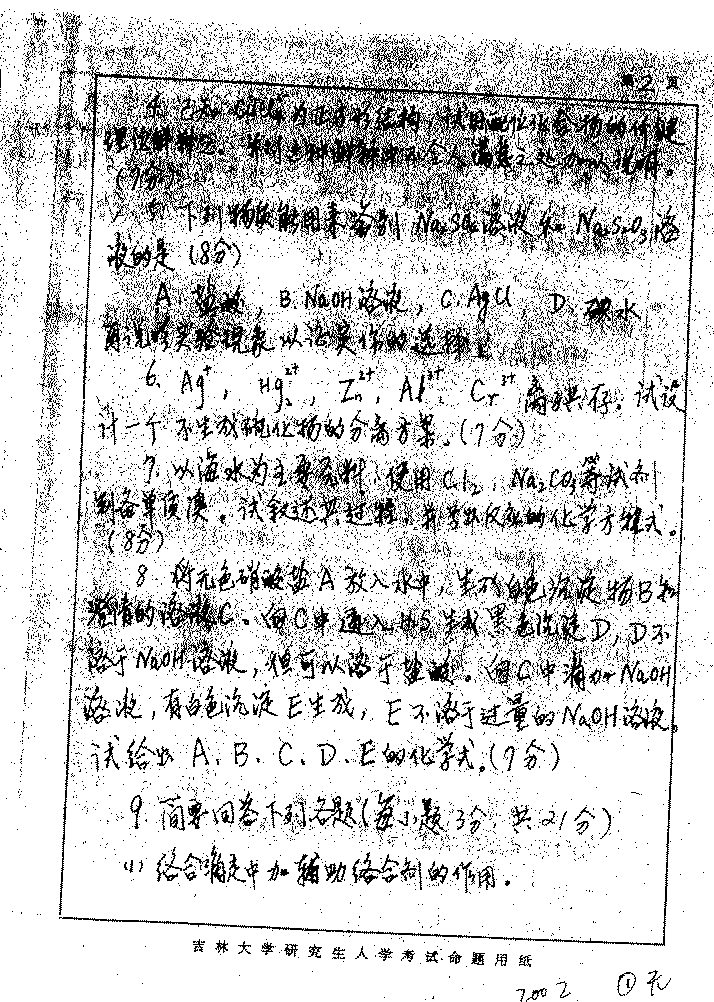 第2页
4. 已知 为正方形结构,试用配位化合物的价键
理论解释之。并对这种解释中不令人满意之处加以说明。
(7分)
5. 下列物质能用来鉴别 Na₂SO₄溶液和 Na₂S₂O₃溶
液的是 (8分)
A. 盐酸, B. NaOH溶液, C. AgCl, D. 碘水
再说明实验现象以证实你的选择。
6. Ag⁺, Hg₂²⁺, Zn²⁺, Al³⁺, Cr³⁺ 离子共存,试设
计一个不生成硫化物的分离方案。(7分)
7. 以海水为主要原料,使用Cl₂、Na₂CO₃等试剂
制备单质溴。试叙述其过程,并写出反应的化学方程式。
(8分)
8. 将无色硝酸盐A放入水中,生成白色沉淀物B和
澄清的溶液C。向C中通入H₂S生成黑色沉淀D,D不
溶于NaOH溶液,但可以溶于盐酸。向C中滴加NaOH
溶液,有白色沉淀E生成,E不溶于过量的NaOH溶液。
试给出A、B、C、D、E的化学式。(7分)
9. 简要回答下列各题(每小题3分,共21分)
(1) 络合滴定中加辅助络合剂的作用。
吉林大学研究生入学考试命题用纸
2002 ①无